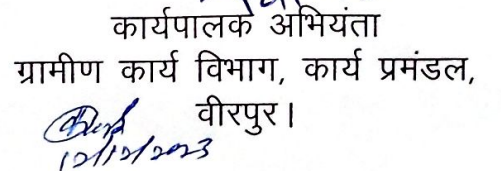 कार्यपालक अभियंता
ग्रामीण कार्य विभाग, कार्य प्रमंडल,
वीरपुर।
12/12/2023